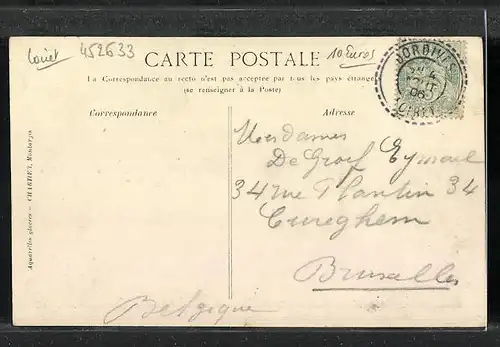 Loiret 452633
10 Euros
CARTE POSTALE
La Correspondance au recto n'est pas acceptée par tous les pays étrangers
(se renseigner à la Poste)
Correspondance
Adresse
DORDIVES
LOIRET
Mesdames
De Groef Eymael
34 rue Plantin 34
Cureghem
Bruxelles
Belgique
Aquarelles glacées - CHARTIER, Montargis